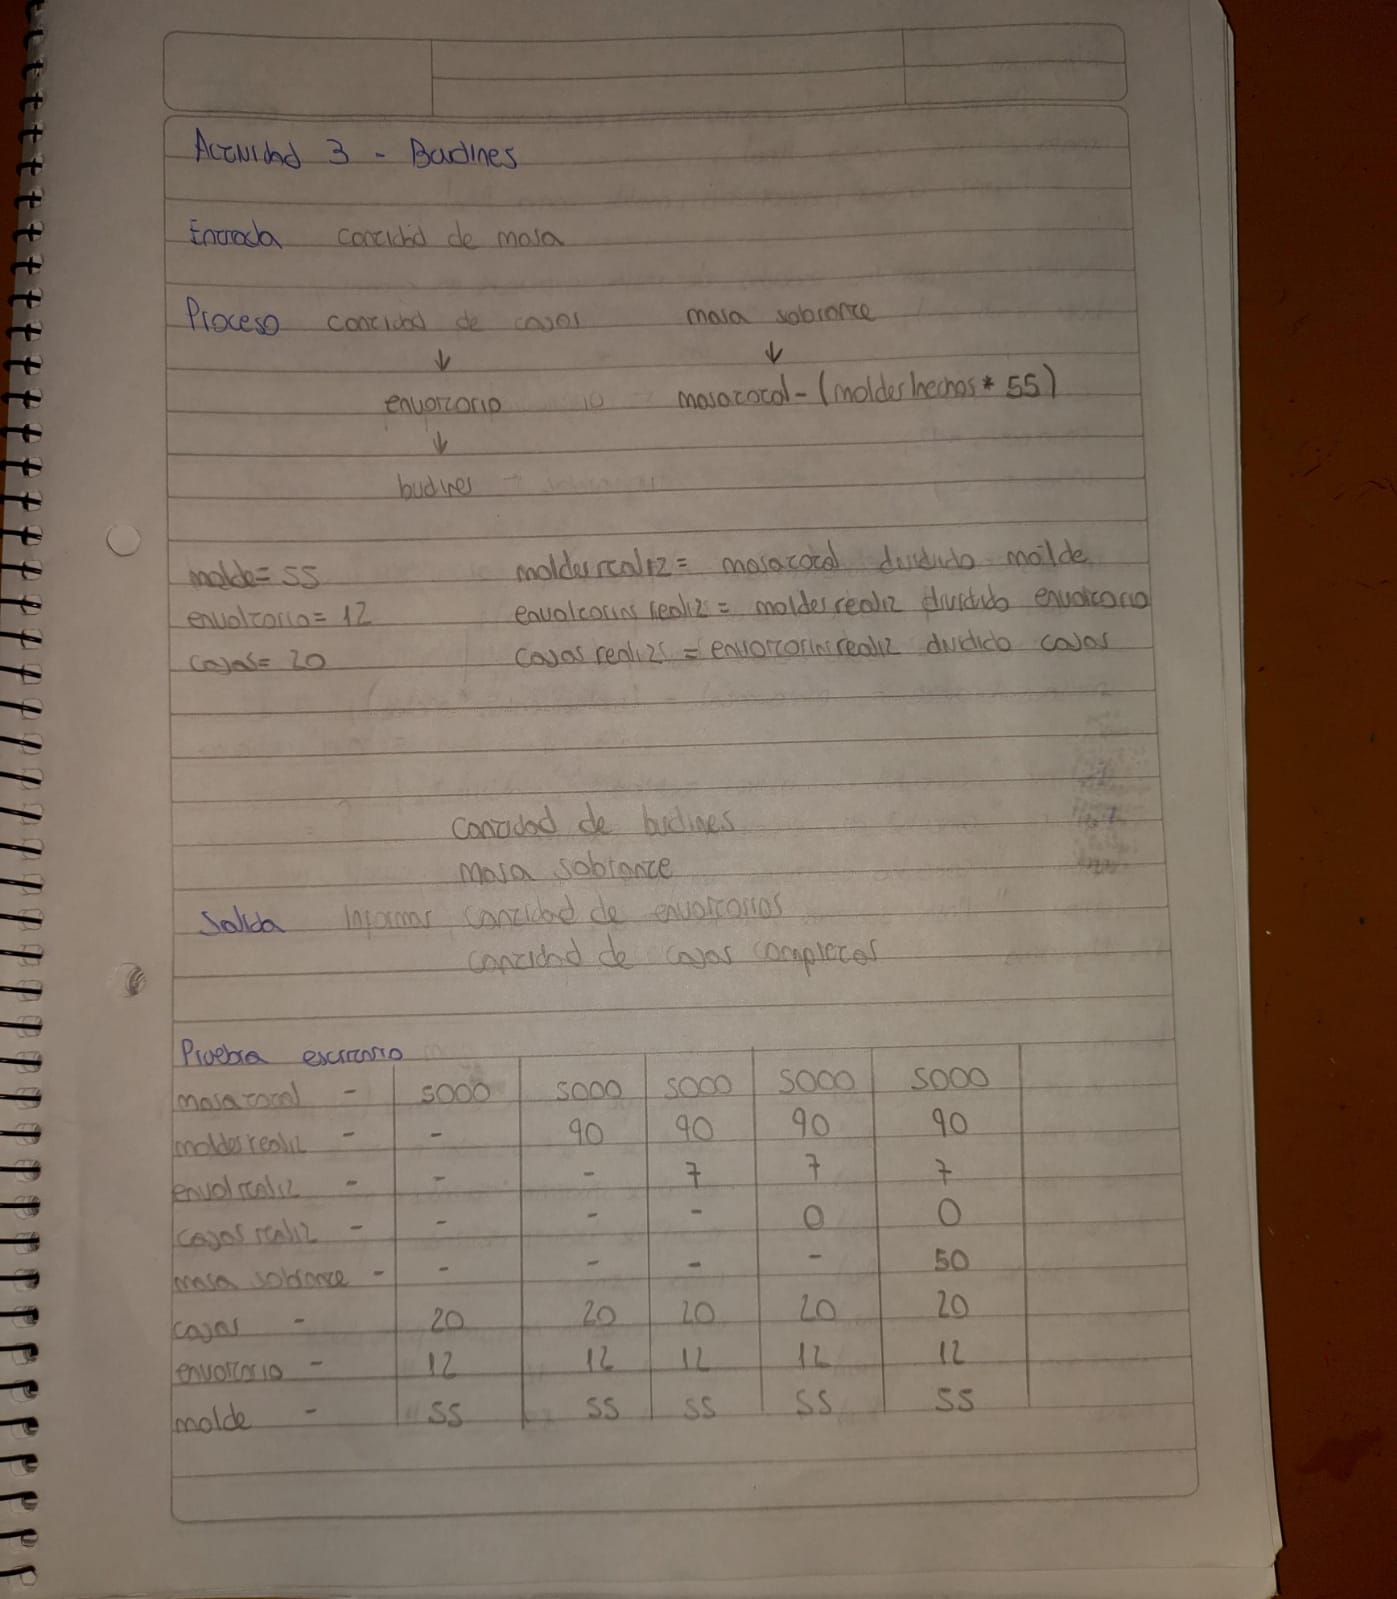 Actividad 3 - Budines
Entrada cantidad de masa
Proceso cantidad de cajas masa sobrante
↓ ↓
envoltorio masatotal - (moldes hechos * 55)
↓
budines
molde= 55 moldesrealiz = masatotal dividido molde
envoltorio= 12 envoltorios realiz = moldes realiz dividido envoltorio
cajas= 20 cajas realizs = envoltorios realiz dividido cajas
cantidad de budines
masa sobrante
Salida Informar cantidad de envoltorios
cantidad de cajas completas
Prueba escritorio
masatotal - 5000 5000 5000 5000 5000
moldes realiz - - 90 90 90 90
envol realiz - - - 7 7 7
cajas realiz - - - - 0 0
masa sobrante - - - - - 50
cajas - 20 20 20 20 20
envoltorio - 12 12 12 12 12
molde - 55 55 55 55 55